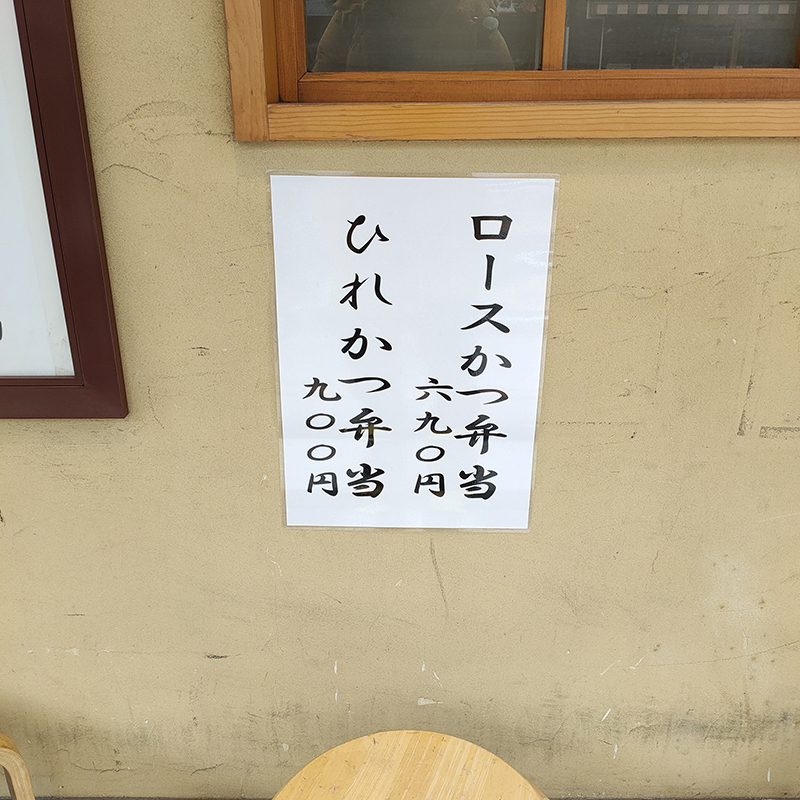 ロースかつ弁当
六九〇円
ひれかつ弁当
九〇〇円